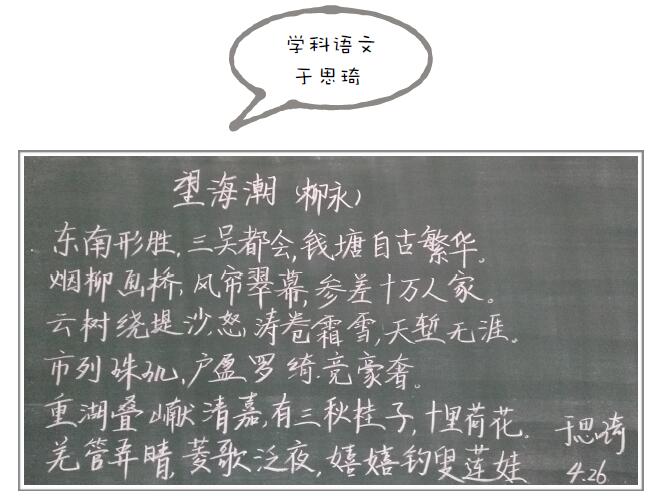 学科语文
于思琦
望海潮(柳永)
东南形胜,三吴都会,钱塘自古繁华。
烟柳画桥,风帘翠幕,参差十万人家。
云树绕堤,沙怒,涛卷霜雪,天堑无涯。
市列珠玑,户盈罗绮.竞豪奢。
重湖叠巘清嘉,有三秋桂子,十里荷花。
羌管弄晴,菱歌泛夜,嬉嬉钓叟莲娃
于思琦
4.26